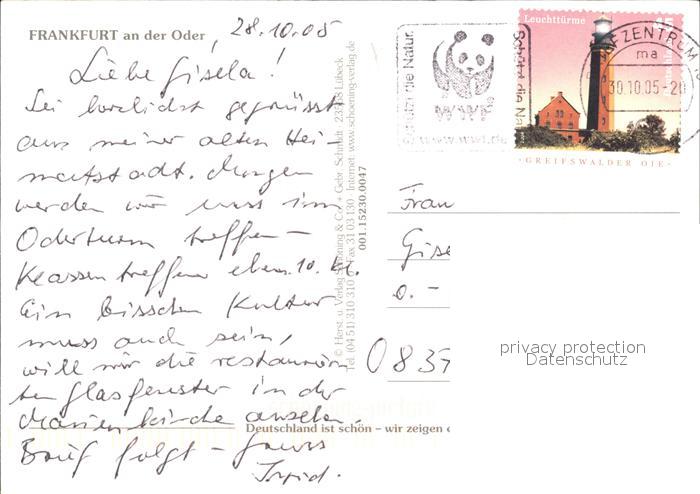 FRANKFURT an der Oder
28.10.05
Liebe Gisela!
Sei herzlichst gegrüsst
aus meiner alten Hei-
matstadt. Morgen
werden wir uns im
Oderturm treffen –
Klassentreffen ehem. 10. Kl.
Ein bisschen Kultur
muss auch sein,
will mir die restaurier
ten Glasfenster in der
Marienkirche ansehen.
Brief folgt – Gruss
Deutschland ist schön – wir zeigen e
© Herst. u. Verlag Schöning & Co + Gebr. Schmidt · 23558 Lübeck
Tel. (04 51) 310 310 · Fax 31 03 130 · Internet: www.schoening-verlag.de
001.15230.0047
Schützt die Natur
WWF
www.wwf.de
Schützt die Natur
Leuchttürme
45
Deutschland
GREIFSWALDER OIE
BRIEFZENTRUM
ma
30.10.05-20
Frau
Gise
o. –
0835
privacy protection
Datenschutz